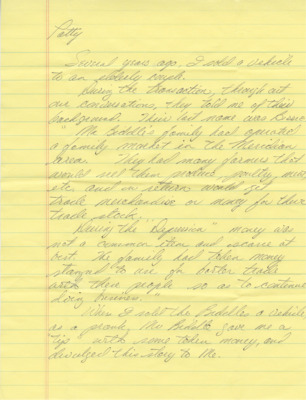 Patty
Several years ago, I sold a vehicle
to an elderly couple.
During the transaction, through out
our conversations, they told me of their
background. Their last name was
"Mr. Biddle's family had operated
a family market in the Meridian
area. They had many farmers that
would sell them produce, poultry,
etc. and in return would get
trade merchandise or money for their
trade stock.
During the "Depression" money was
not a common item and scarce at
best. The family had token money
stamped to use for barter trade
with these people so as to continue
doing business."
When I sold the Biddles a vehicle
as a prank, Mr. Biddle gave me a
"tip" with some token money, and
divulged this story to me.